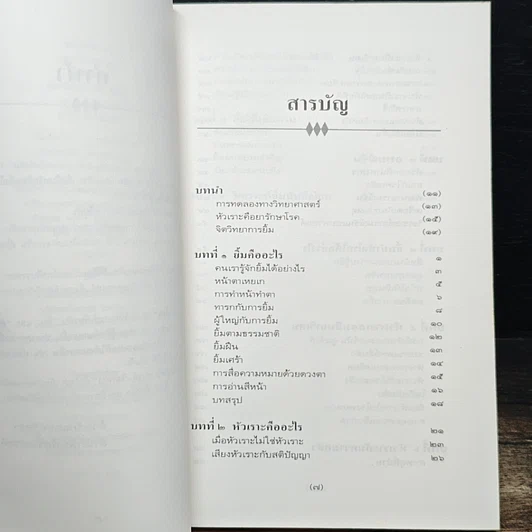 สารบัญ
บทนำ (๑๑)
การทดลองทางวิทยาศาสตร์ (๑๓)
หัวเราะคือยารักษาโรค (๑๕)
จิตวิทยาการยิ้ม (๑๙)
บทที่ ๑ ยิ้มคืออะไร ๑
คนเรารู้จักยิ้มได้อย่างไร ๓
หน้าตาเหยเก ๕
การทำหน้าทำตา ๖
ทารกกับการยิ้ม ๘
ผู้ใหญ่กับการยิ้ม ๑๐
ยิ้มตามธรรมชาติ ๑๒
ยิ้มฝืน ๑๓
ยิ้มเศร้า ๑๔
การสื่อความหมายด้วยดวงตา ๑๕
การอ่านสีหน้า ๑๖
บทสรุป ๑๘
บทที่ ๒ หัวเราะคืออะไร ๒๑
เมื่อหัวเราะไม่ใช่หัวเราะ ๒๓
เสียงหัวเราะกับสติปัญญา ๒๖
(๗)